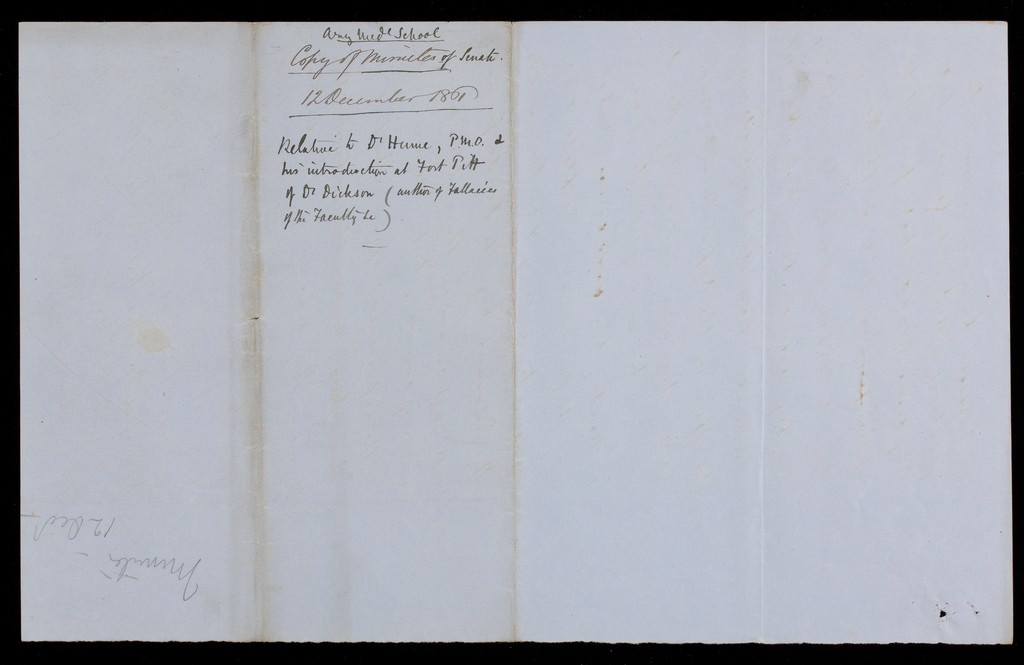 Army Medl School
Copy of Minutes of Senate.
12 December 1861
Relative to Dr Hume, P.M.O. &
his introduction at Fort Pitt
of Dr Dickson (author of Fallacies
of the Faculty &c)
Minutes
12 Decr